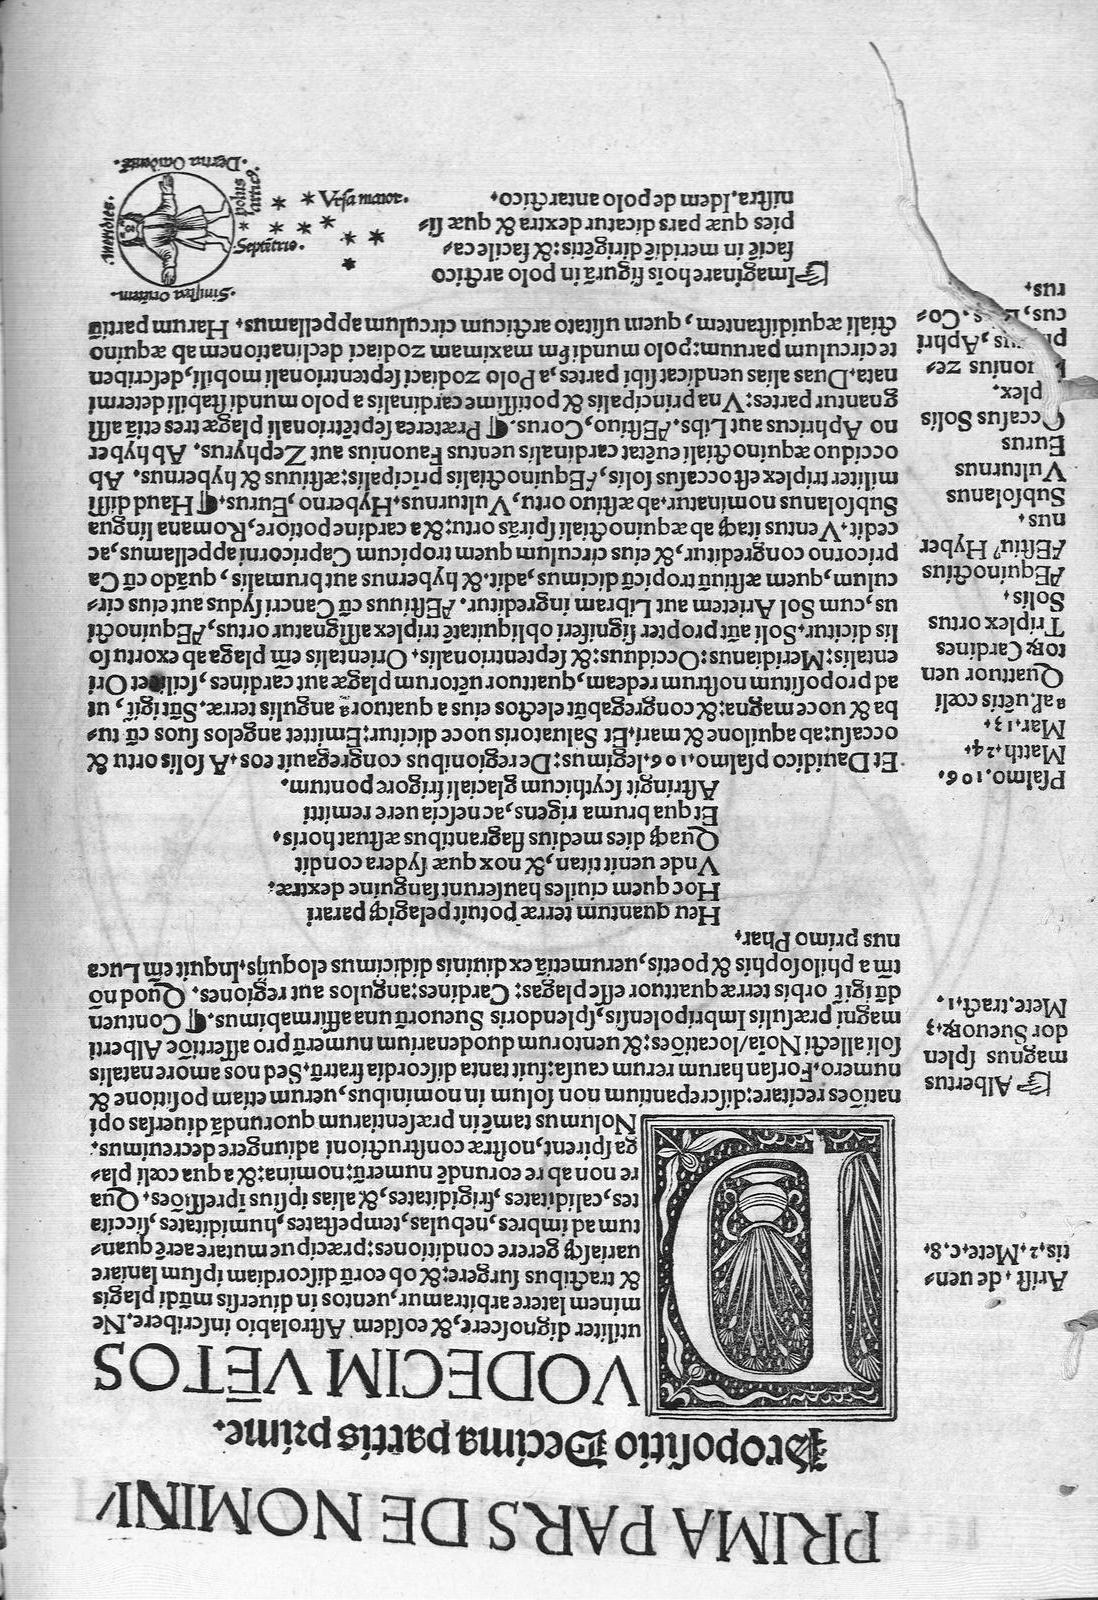 PRIMA PARS DE NOMINI
Propositio Decima partis prime.
DVODECIM VĒTOS
utiliter dignoscere, & eosdem Astrolabio inscribere. Ne
minem latere arbitramur, uentos in diuersis mūdi plagis
& tractibus surgere: & ob eorū discordiam ipsum laniare
uariasq; gerere conditiones: præcipue mutare aerē quan-
tum ad imbres, nebulas, tempestates, humiditates, siccita
tes, caliditates, frigiditates, & alias ipsius īpressiões. Qua
re non ab re eorundē numerū: nomina: & a qua cœli pla-
ga spirent, nostræ constructioni adiungere decreuimus.
Nolumus tamē in præsentiarum quorundā diuersas opi
natiões recitare: discrepantium non solum in nominibus, uerum etiam positione &
numero. Forsan harum rerum causa: fuit tanta discordia fratrū. Sed nos amore natalis
soli allecti Noīa/locatiões: & uentorum duodenarium numerū pro assertiōe Alberti
magni præsulis Imbripolensis, splendoris Sueuorū una affirmabimus. ¶ Contuen
dū igit orbis terræ quattuor esse plagas: Cardines: angulos aut regiones. Quod nō
tm̄ a philosophis & poetis, uerumetiā ex diuinis didicimus eloquijs. Inquit em̄ Luca
nus primo Phar.
Heu quantum terræ potuit pelagiq; parari
Hoc quem ciuiles hauserunt sanguine dextræ:
Vnde uenit titan, & nox quæ sydera condit
Quaq; dies medius flagrantibus æstuat horis,
Et qua bruma rigens, ac nescia uere remitti
Astringit scythicum glaciali frigore pontum.
Et Dauidico psalmo. 106. legimus: De regionibus congregauit eos. A solis ortu &
occasu: ab aquilone & mari. Et Saluatoris uoce dicitur: Emittet angelos suos cū tu-
ba & uoce magna: & congregabūt electos eius a quatuor ª angulis terræ. Sūt igit, ut
ad propositum nostrum redeam, quattuor uētorum plagæ aut cardines, scilicet Ori
entalis: Meridianus: Occiduus: & septentrionalis. Orientalis em̄ plaga ab exortu so
lis dicitur. Soli aūt propter signiferi obliquitatē triplex assignatur ortus, Æquinocti
us, cum Sol Arietem aut Libram ingreditur. Æstiuus cū Cancri sydus aut eius cir-
culum, quem æstiuū tropicū dicimus, adit. & hybernus aut brumalis, quādo cū Ca
pricorno congreditur, & eius circulum quem tropicum Capricorni appellamus, ac
cedit. Ventus itaq; ab æquinoctiali spirās ortu: & a cardine potiore, Romana lingua
Subsolanus nominatur. ab æstiuo ortu, Vulturnus. Hyberno, Eurus. ¶ Haud dissi
militer triplex est occasus solis, Æquinoctialis prīcipalis: æstiuus & hybernus. Ab
occiduo æquinoctiali euētat cardinalis uentus Fauonius aut Zephyrus. Ab hyber
no Aphricus aut Libs. Æstiuo, Corus. ¶ Præterea septētrionali plagæ tres etiā assi
gnantur partes: Vna principalis & potissime cardinalis a polo mundi stabili determi
nata. Duas alias uendicat sibi partes, a Polo zodiaci septentrionali mobili, describen
te circulum paruum: polo mundi ꝑ maximam zodiaci declinationem ab æquino
ctiali æquidistantem, quem usitato arcticum circulum appellamus. Harum partiū
☞ Imaginare hoīs figurā in polo arctico
faciē in meridiē dirigētis: & facile ca-
pies quæ pars dicatur dextra & quæ si-
nistra. Idem de polo antarctico.
Sinistra Oriētem.
Meridies.
Septētrio.
Polus arctic9.
Vrsa maior.
Dextra Occidentē.
Arist. de uen-
tis. 2. Mete. c. 8.
☞ Albertus
magnus splen
dor Sueuoꝝ. 3
Mete. tract. 1.
Psalmo. 106.
Math. 24.
Mar. 13.
ª al. uētis cœli
Quattuor uen
toꝝ Cardines
Triplex ortus
Solis.
Æquinoctius
Æstiu9 Hyber
nus.
Subsolanus
Vulturnus
Eurus
Occasus Solis
plex.
ionius ze-
Aphri
cus, Co-
rus.